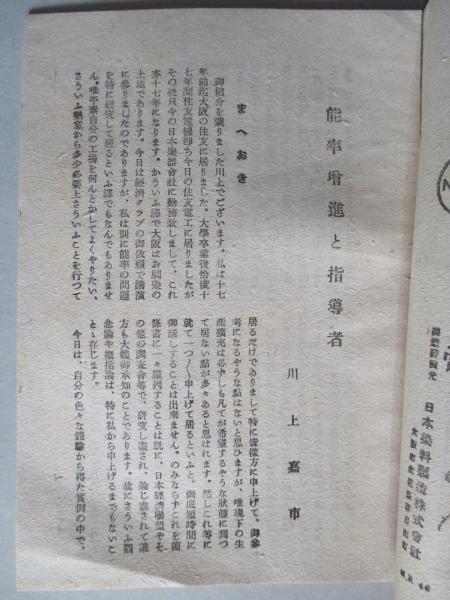 能率增進と指導者
川上嘉市
まへおき
御紹介を蒙りました川上でございます。私は十七
年前迄大阪の住友に居りました。大學卒業後恰度十
七年間住友電線即ち今日の住友電工に居りましたが
その後只今の日本樂器會社に勤務致しまして、これ
亦十七年になります。かういふ譯で大阪はお馴染の
土地であります。今日は經濟クラブの御依賴で講演
に參りましたのでありますが、私は別に能率の問題
を特に研究して居るといふ譯でもなんでもありませ
ん。唯平素自分の工場を何んとかしてよくやりたい、
さういふ熱意から多少必要上さういふことを行つて
居るだけでありまして特に皆樣方に申上げて、御參
考になるやうな點はないと思ひますが、唯現下の生
產擴充は必ずしも凡てが希望するやうな狀態に到つ
て居ない點が多々あると思はれます。然しこれ等に
就て一つ/\申上げて居るといふと、到底短時間に
御話しすることは出來ません。のみならずこれを箇
條書に一々羅列することは既に、日本經濟聯盟やそ
の他の調査會等で、研究し盡され、論じ盡されて誰
方も大體御承知のことであります。故にさういふ觀
念論や槪括論は、特に私から申上げるまでもないこ
とゝ存じます。
今日は、自分の色々な體驗から得た實例の中で、
日本染料製造株式會社